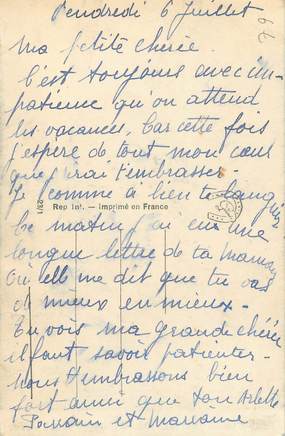 Vendredi 6 Juillet
66
ma petite cherie.
C'est toujours avec im-
patience qu'on attend
les vacances, Car cette fois
j'espere de tout mon coeur
que j'irai t'embrasser.
Je comme à bien te languir
Rep Int. — Imprimé en France
Ce matin ai eu une
longue lettre de ta Maman
Ou elle me dit que tu vas
de mieux en mieux -
Tu vois ma grande cherie
il faut savoir patienter-
nous t'embrassons bien
fort ainsi que ton
Parrain et Marraine